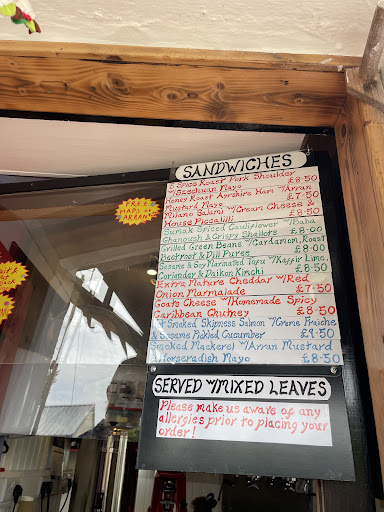 SANDWICHES
5 Spice Roast Pork Shoulder
w/Szechuan Mayo £8·50
Honey Roast Ayrshire Ham w/Arran
Mustard Mayo £7·50
Milano Salami w/Cream Cheese &
House Piccalilli £8·50
Sumak Spiced Cauliflower w/Baba
Ghanoush & Crispy Shallots £8·00
Grilled Green Beans w/Cardamon, Roast
Beetroot & Dill Puree £8·00
Sesame & Soy Marinated Tofu w/Kaffir Lime,
Coriander & Daikon Kimchi £8·50
Extra Mature Cheddar w/Red
Onion Marmalade £7·50
Goats Cheese w/Homemade Spicy
Caribbean Chutney £8·50
Hot Smoked Skipness Salmon w/Creme Fraiche
& Sesame Pickled Cucumber £9·50
Smoked Mackerel w/Arran Mustard
& Horseradish Mayo £8·50
SERVED w/MIXED LEAVES
Please make us aware of any
allergies prior to placing your
order!
FREE
MAPS of
ARRAN!